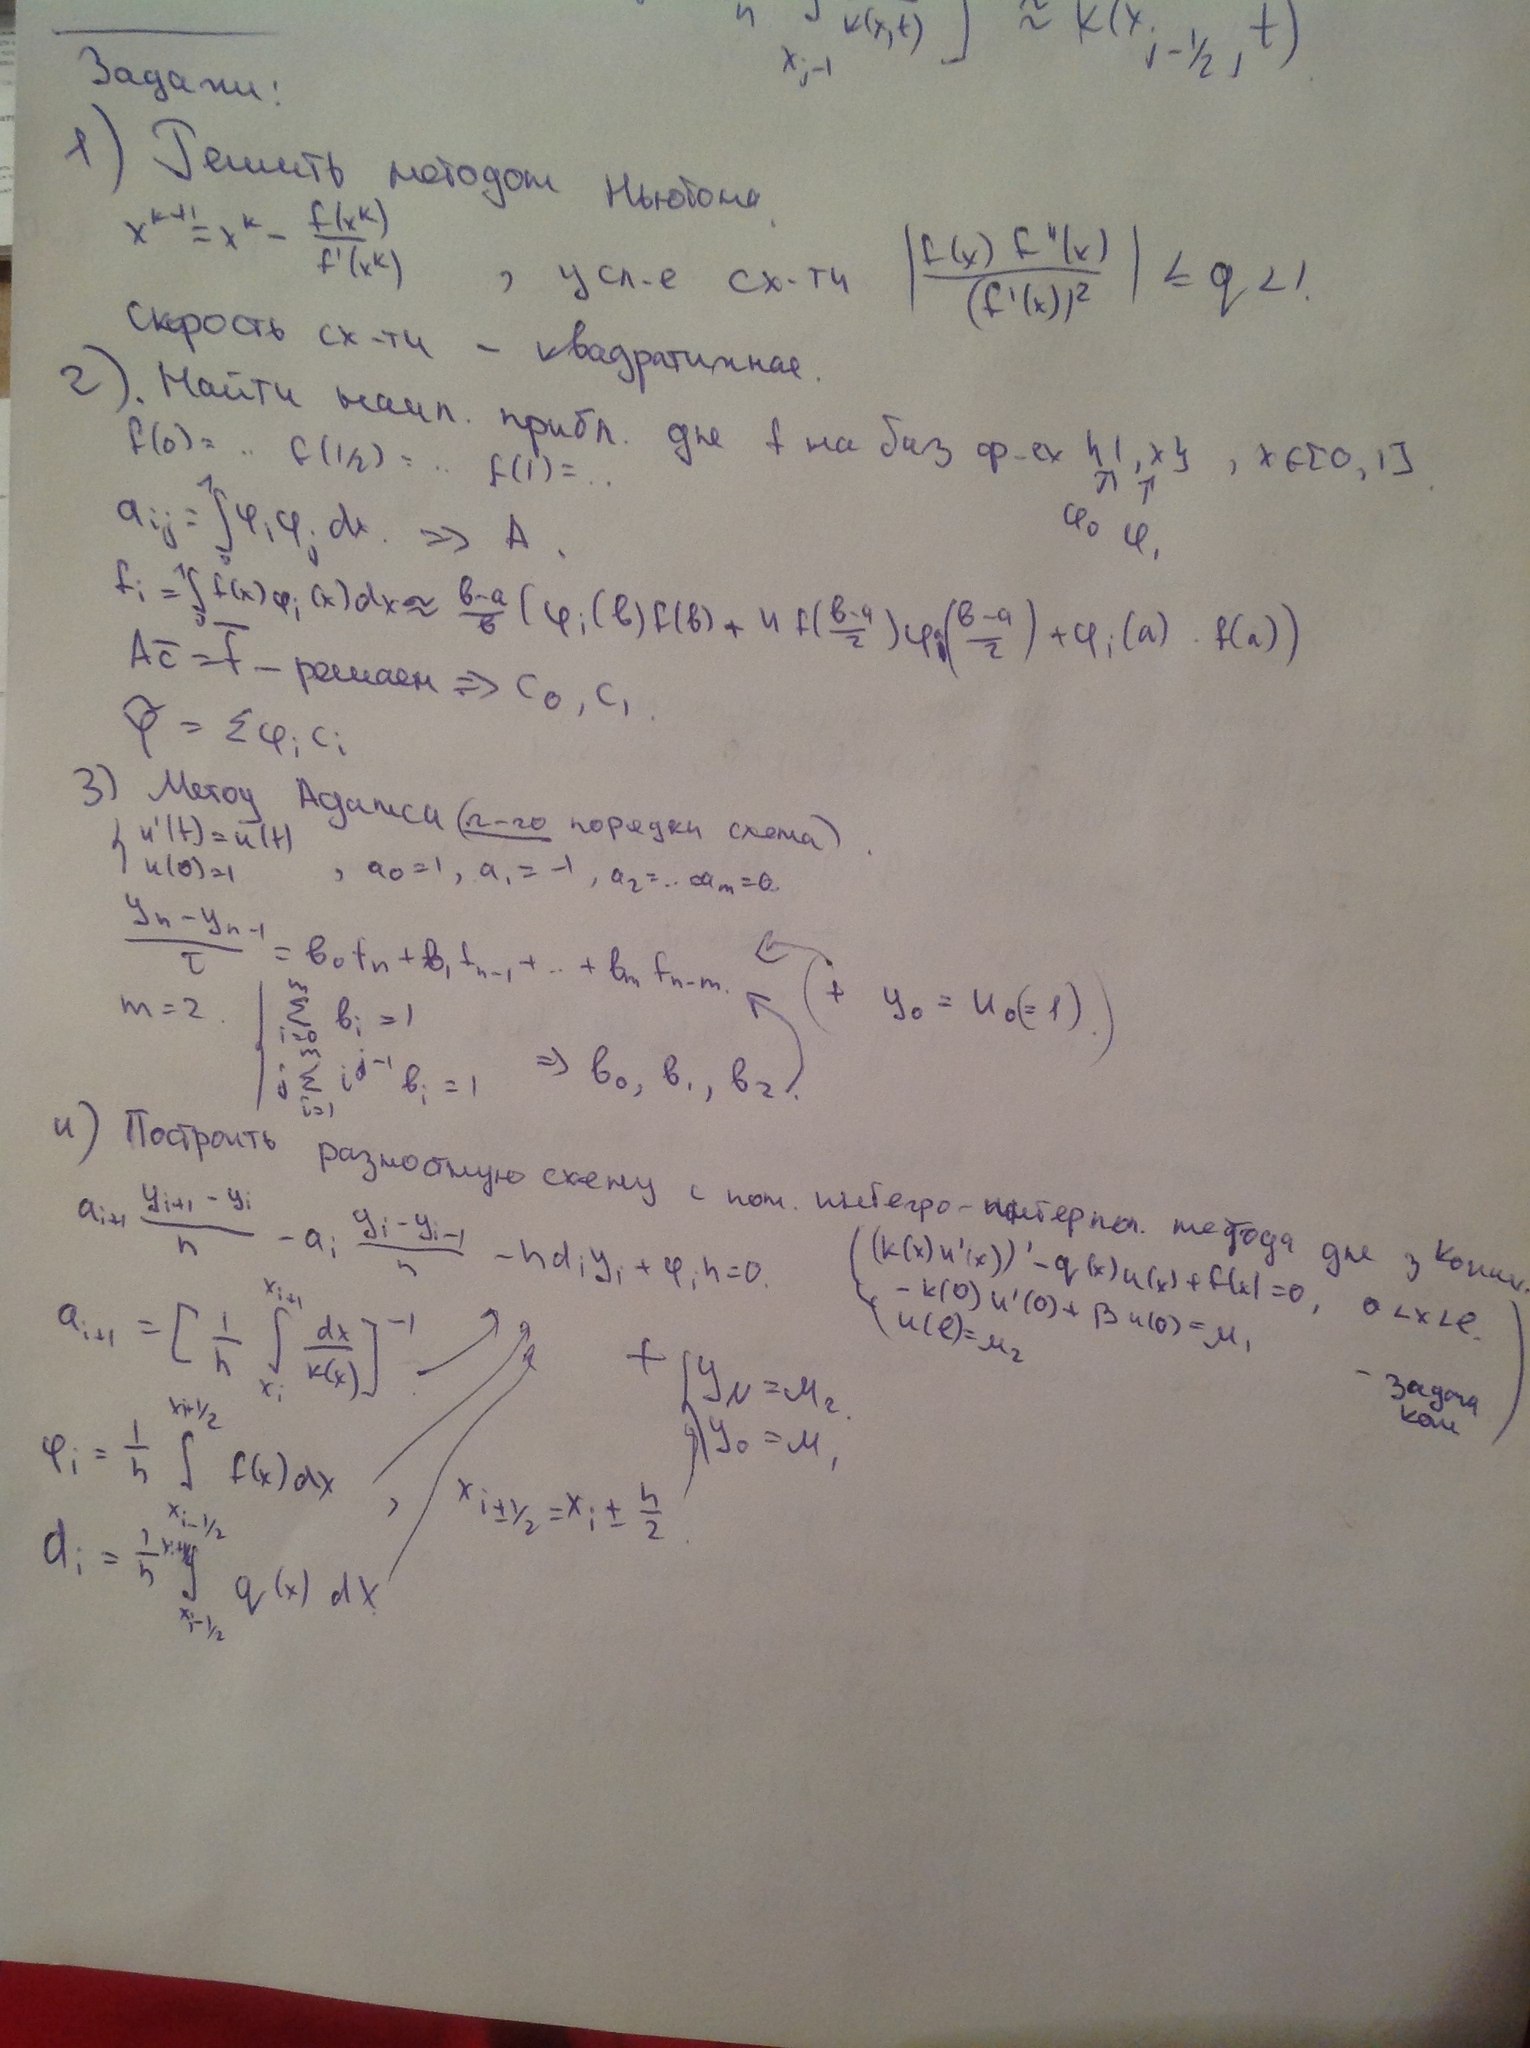 h ∫ k(x,t) ] ≈ k(x_{j-1/2}, t)
x_{j-1}
Задачи:
1) Решить методом Ньютона.
x^{k+1} = x^k - f(x^k)/f'(x^k) , усл-е сх-ти |f(x) f''(x)/(f'(x))^2| ≤ q < 1.
Скорость сх-ти - квадратичная.
2). Найти наил. прибл. для f на баз ф-ях {1, x}, x∈[0,1].
f(0)= .. f(1/2)= .. f(1)= .. φ_0 φ_1
a_{ij} = ∫_0^1 φ_i φ_j dx. => A.
f_i = ∫_0^1 f(x) φ_i(x) dx ≈ (b-a)/6 (φ_i(b) f(b) + 4 f((b-a)/2) φ_i((b-a)/2) + φ_i(a) · f(a))
A c̄ = f̄ - решаем => c_0, c_1.
φ̃ = Σ φ_i c_i
3) Метод Адамса (2-го порядка схема).
{ u'(t) = u(t)
u(0)=1 , a_0=1, a_1=-1, a_2=.. a_m=0.
(y_n - y_{n-1})/τ = b_0 f_n + b_1 f_{n-1} + .. + b_m f_{n-m}. (+ y_0 = u_0 (=1).)
m=2. | Σ_{i=0}^m b_i = 1
j Σ_{i=1}^m i^{j-1} b_i = 1 => b_0, b_1, b_2.
4) Построить разностную схему с пом. интегро-интерпол. метода для з Коши.
a_{i+1} (y_{i+1} - y_i)/h - a_i (y_i - y_{i-1})/h - h d_i y_i + φ_i h = 0.
( { (k(x)u'(x))' - q(x)u(x) + f(x) = 0, 0<x<l.
-k(0)u'(0) + βu(0) = μ_1
u(l) = μ_2
- задача Коши )
a_{i+1} = [ 1/h ∫_{x_i}^{x_{i+1}} dx/k(x) ]^{-1}.
+ { y_N = μ_2.
y_0 = μ_1
φ_i = 1/h ∫_{x_{i-1/2}}^{x_{i+1/2}} f(x) dx , x_{i±1/2} = x_i ± h/2.
d_i = 1/h ∫_{x_{i-1/2}} q(x) dx.